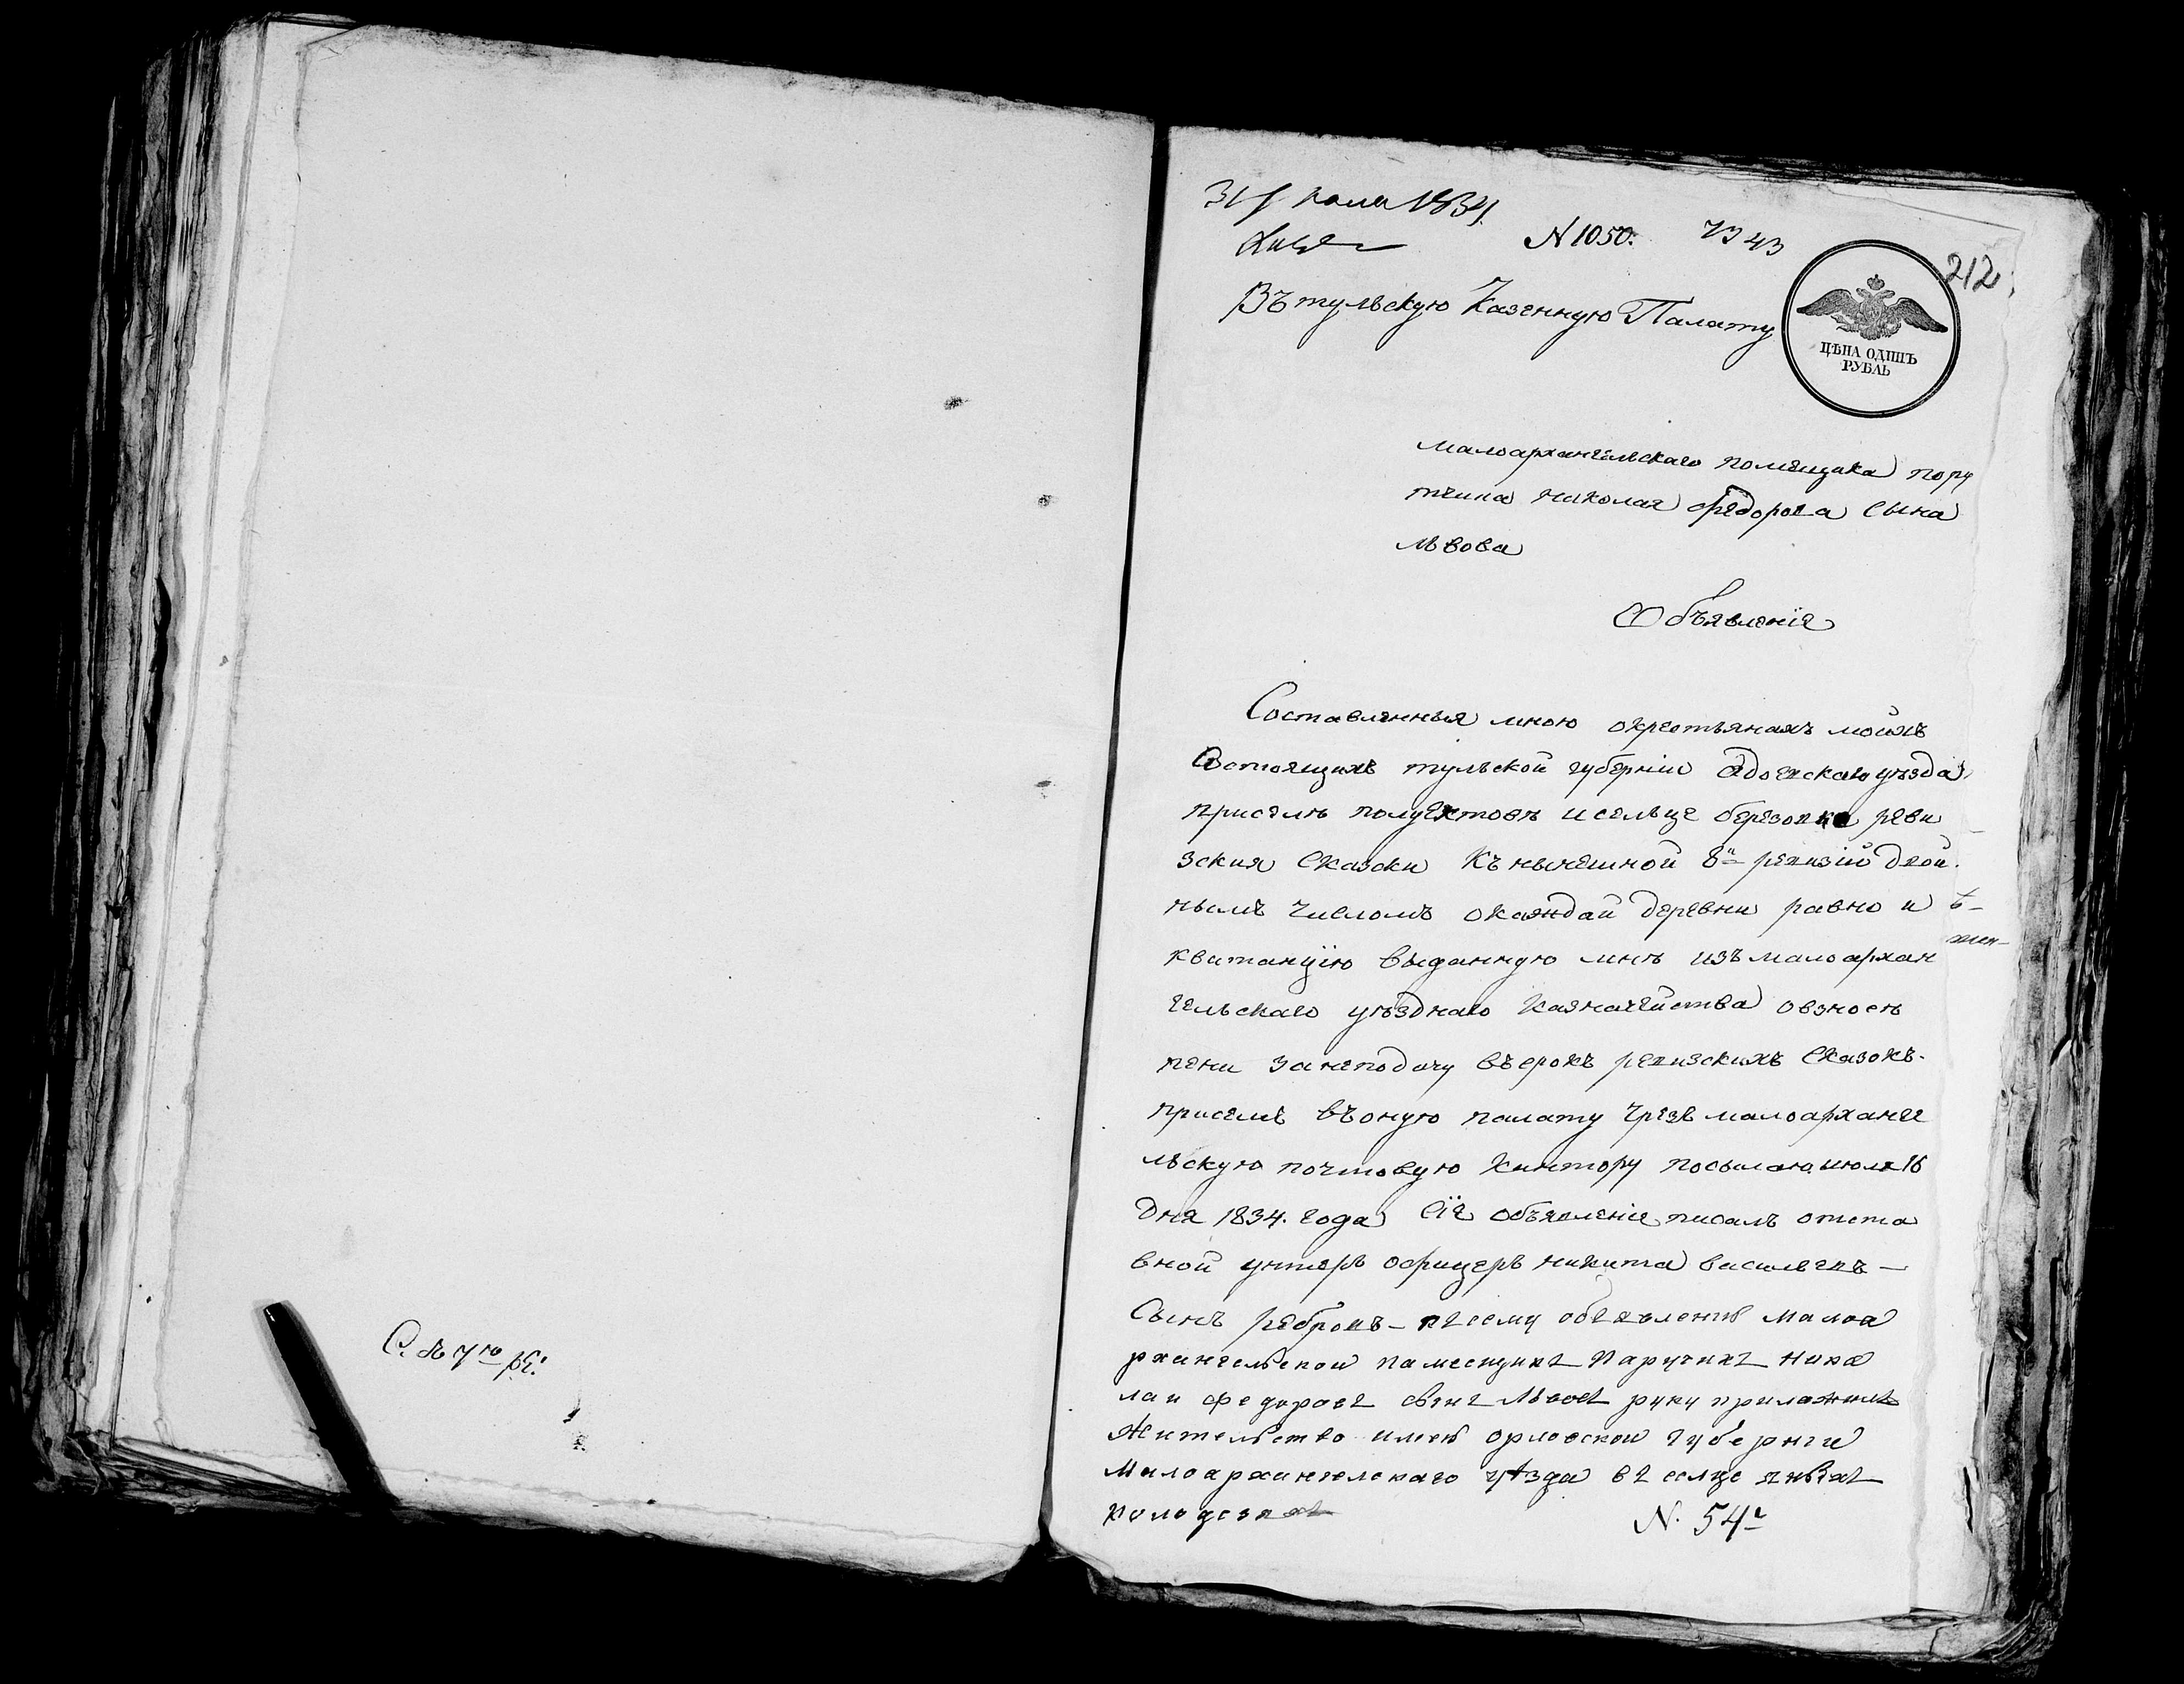 С. к 7ю
31 июля 1834.
N 1050. 7343
212
Въ тульскую Казенную Палату
ЦѢНА ОДИНЪ
РУБЛЬ
малоархангельскаго помещика пору
тчика николая федорова сына
львова
Объявленіе
Составленныя мною окрестьянахъ моихъ
Состоящихъ тульской губерніи адоевскаго уѣзда
присемъ полуектовѣ исельце березовке реви
зския Сказски Къ нынешной 8й ревизіи двой
нымъ числомъ окаждай деревни равно и
квитанцію выданную мнѣ изъ малоархан
гельскаго уѣзднаго казначейства овзносѣ
пени занеподачу въсрокъ ревизскихъ Сказокъ.
присемъ въоную палату чрезъ малоарханге
льскую почтовую кантору посылаю июля 16
дня 1834. года Сіе объявленіе писалъ отста
вной унтеръ офицеръ никита васильевъ
Сынъ ребровъ - ксему объявленію малоа
рхангельской памесщикъ Паручикъ Нико
лаи федоровъ сынъ Львовъ руку приложилъ
Жительство имею орловской губернги
Малоархангельскаго уѣзда въ селце
колодезках
N. 54